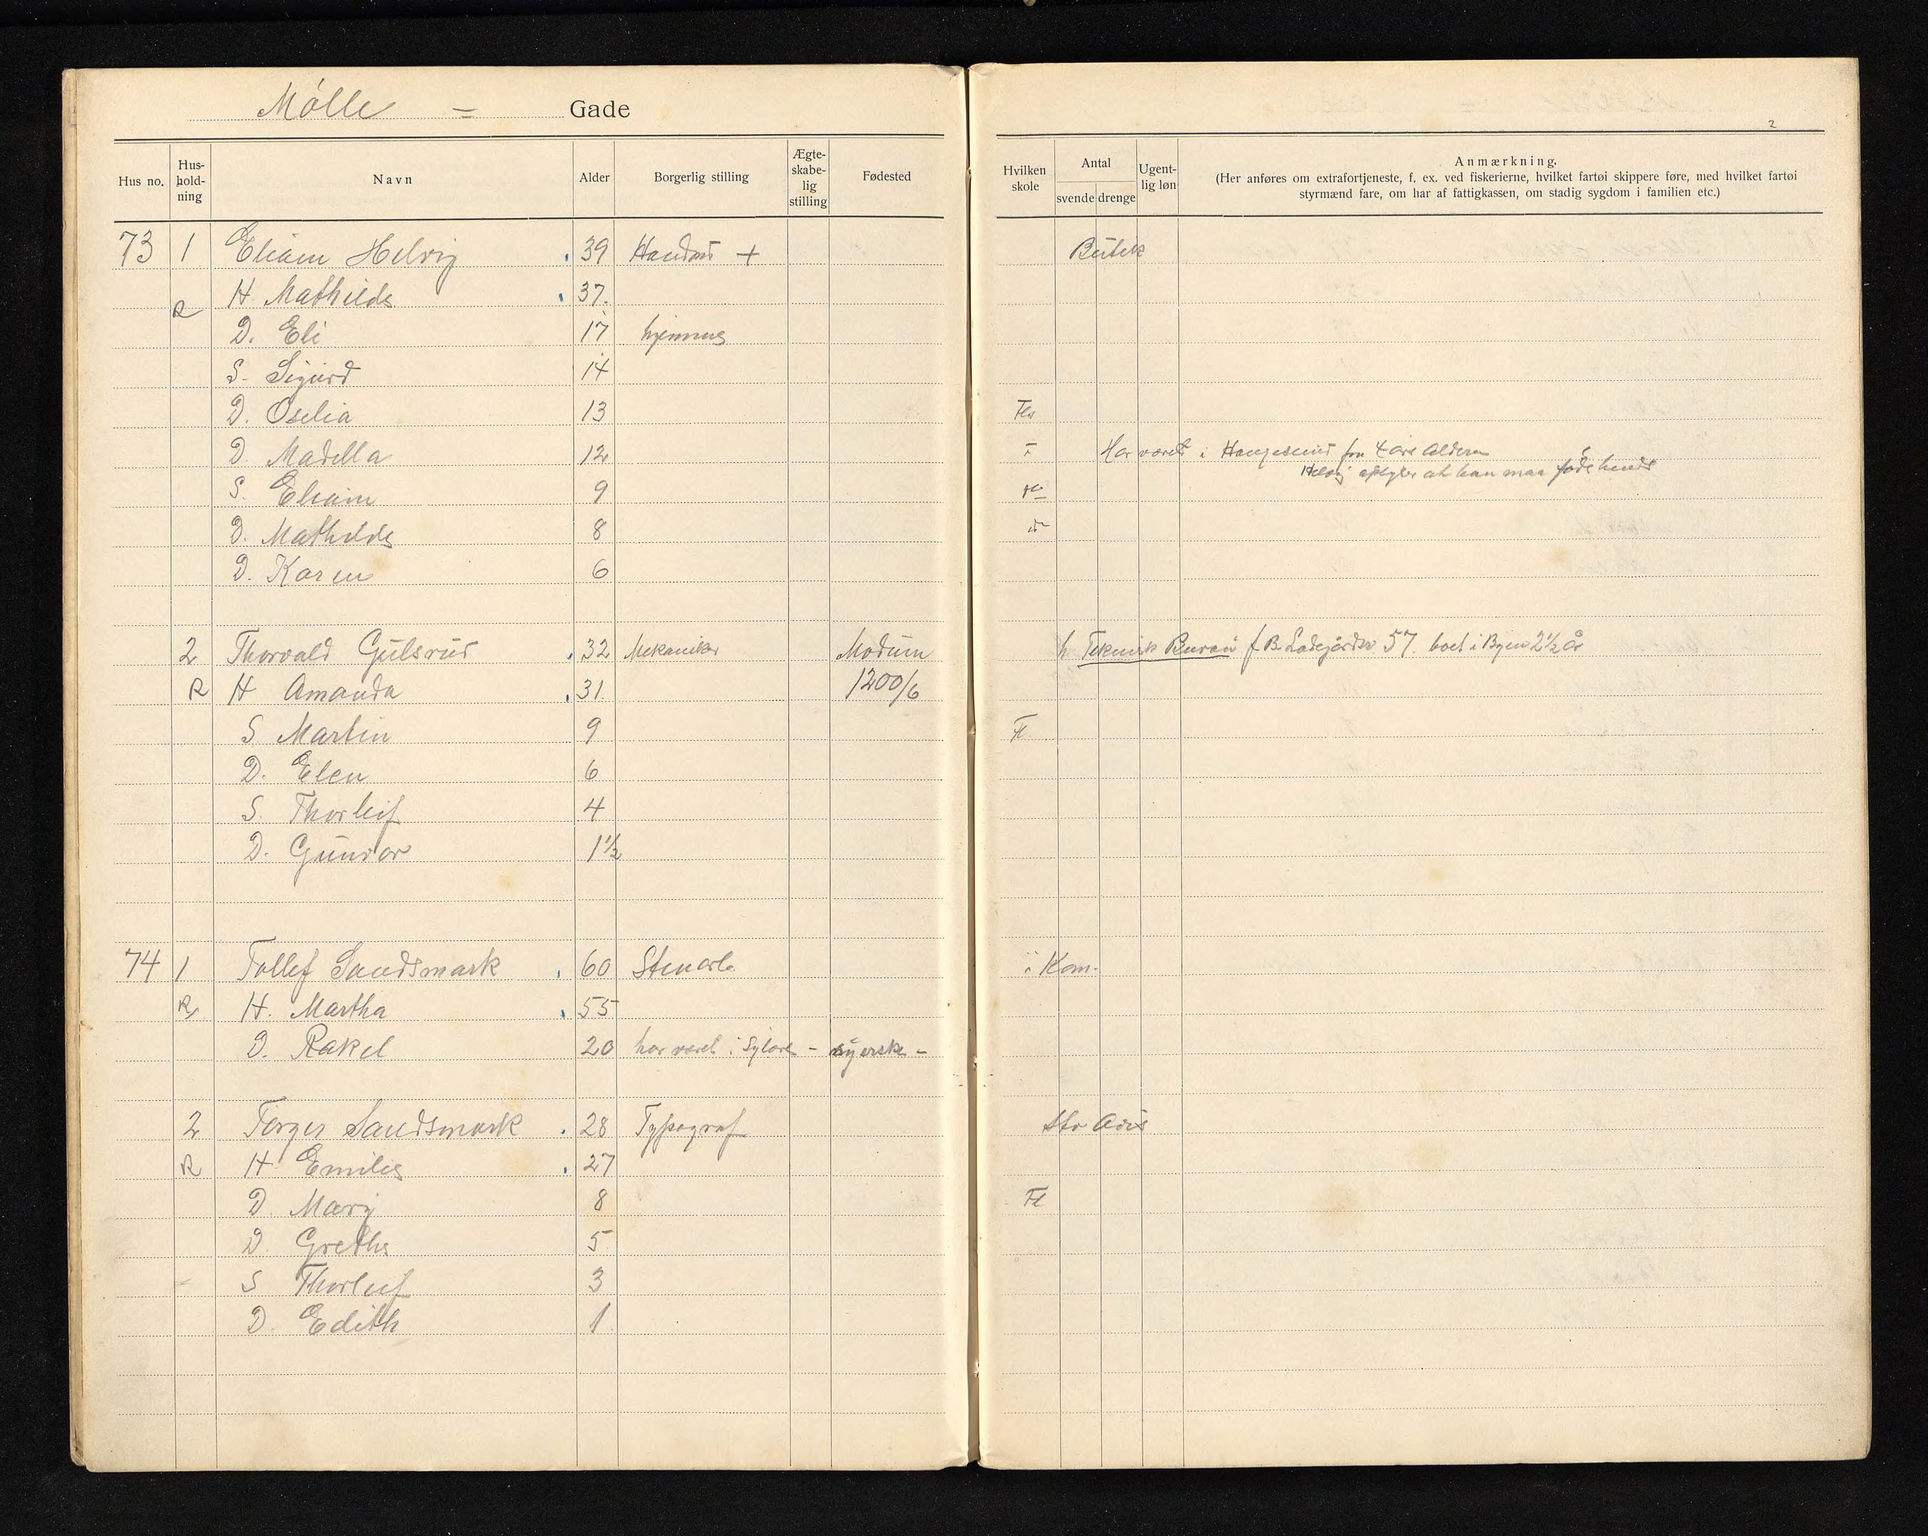 Mølle = Gade
2
Hus no. Hus-hold-ning Navn Alder Borgerlig stilling Ægte-skabe-lig stilling Fødested Hvilken skole Antal svende drenge Ugent-lig løn Anmærkning.
(Her anføres om extrafortjeneste, f. ex. ved fiskerierne, hvilket fartøi skippere føre, med hvilket fartøi
styrmænd fare, om har af fattigkassen, om stadig sygdom i familien etc.)
73 1 Eliam Helvig 39 + Butik
R H Mathilde 37.
D. Eli 17 hjemme
S. Sigurd 14
D. Oselia 13
D. Madella 12 Har været i Haugesund fra 4 års Alderen
Helvig at han maa føde hende
S. Eliam 9
D. Mathilde 8
D. Karen 6
2 Thorvald Gulsrud 32 Mekaniker Modum h. Teknisk Bureau f B. Ladegårdsv 57. boet i Byen 2½ år
R H Amanda 31. 1200/6
S Martin 9 Fl
D. Elen 6
S. Thorleif 4
D. Gunvor 1½
74 1 Tollef Sandsmark 60 Stenarb. i Kom.
R H. Martha 55
D. Rakel 20 har været i - syerske -
2 Torger Sandsmark 28 Typograf Stv Avis
R H Emilie 27
D Mary 8 Fl
D. Grethe 5
S Thorleif 3
D. Edith 1